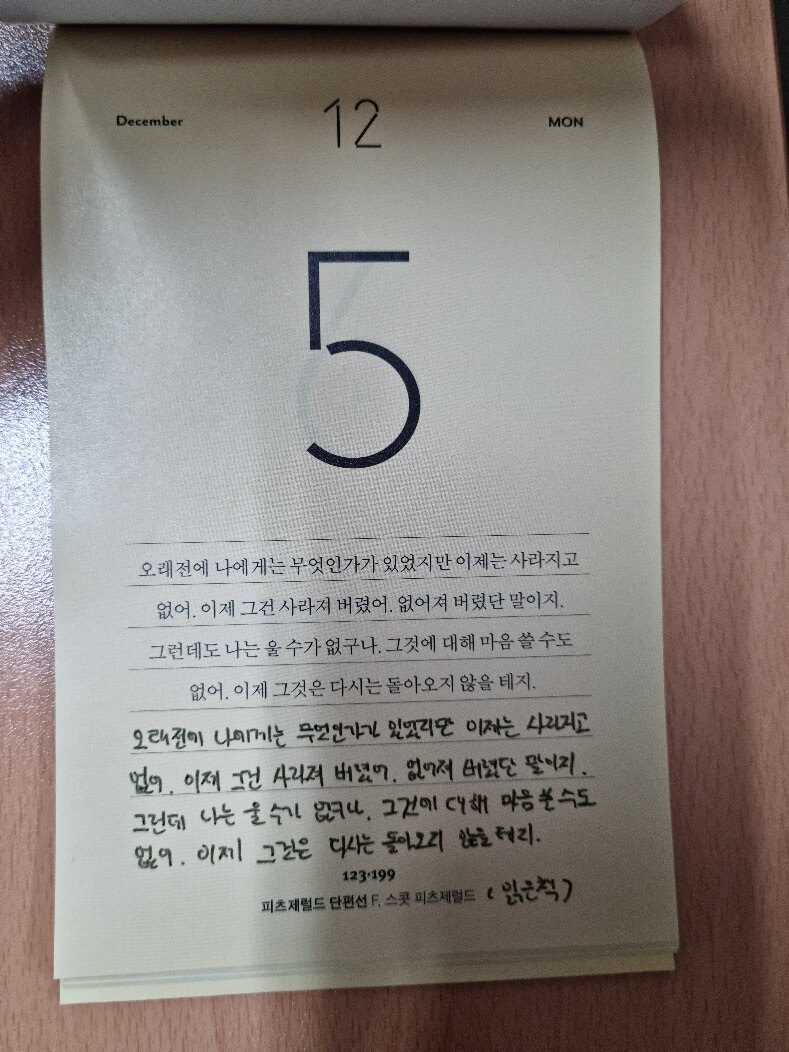 December 12 MON
5
오래전에 나에게는 무엇인가가 있었지만 이제는 사라지고
없어. 이제 그건 사라져 버렸어. 없어져 버렸단 말이지.
그런데도 나는 울 수가 없구나. 그것에 대해 마음 쓸 수도
없어. 이제 그것은 다시는 돌아오지 않을 테지.
오래전에 나에게는 무엇인가가 있었지만 이제는 사라지고
없어. 이제 그건 사라져 버렸어. 없어져 버렸단 말이지.
그런데 나는 울 수가 없구나. 그것에 대해 마음 쓸 수도
없어. 이제 그것은 다시는 돌아오지 않을 테지.
123·199
피츠제럴드 단편선 F. 스콧 피츠제럴드 (읽은책)